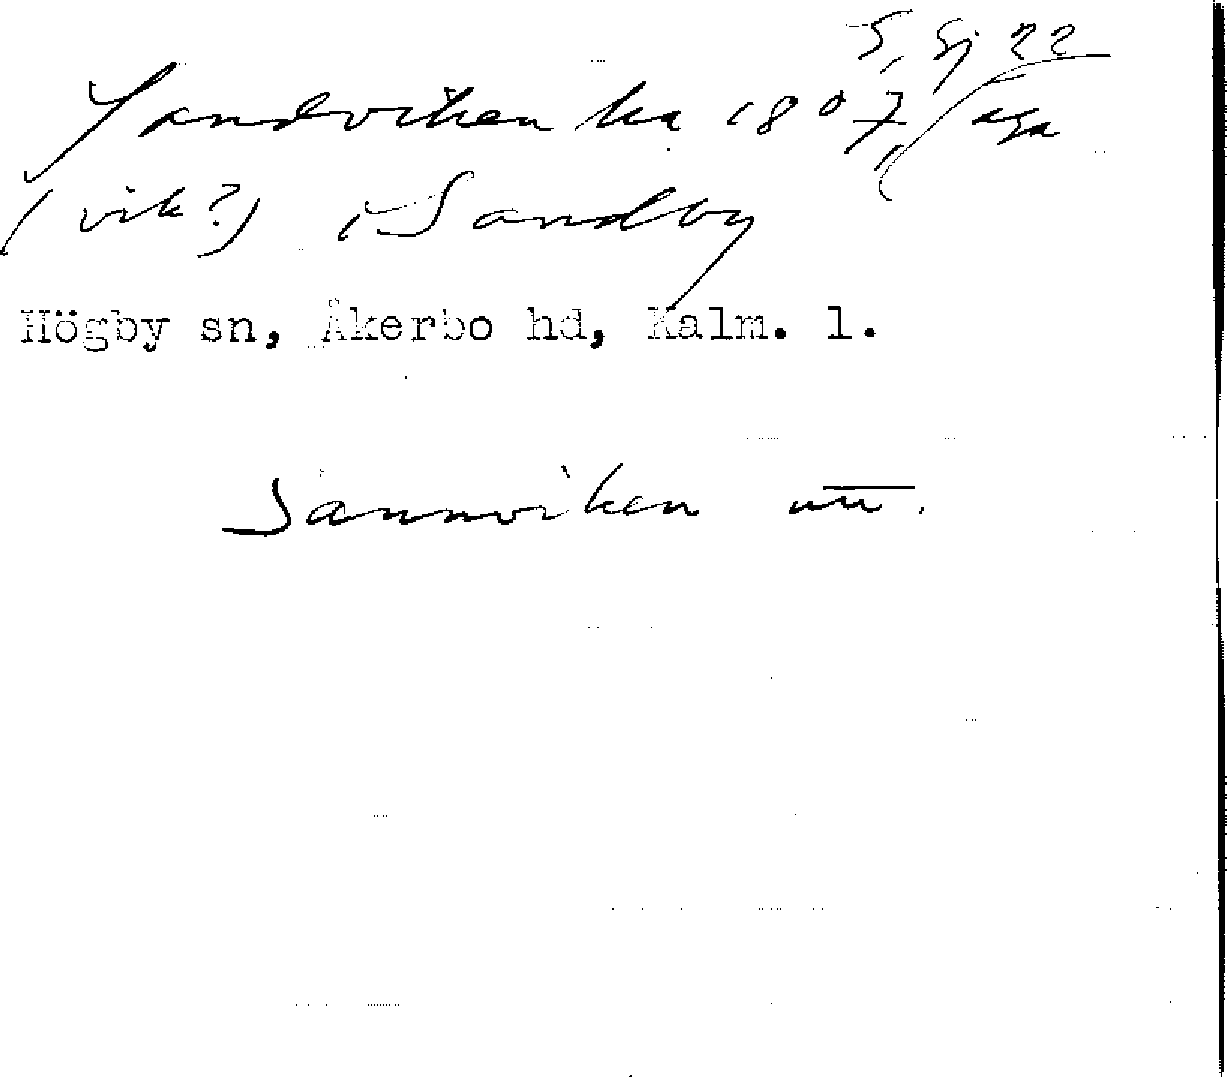 S, Sj 22
Sandviken ha 1807, aga
(vik?) i Sandby
Högby sn, Åkerbo hd, Kalm. l.
Sannviken utt.